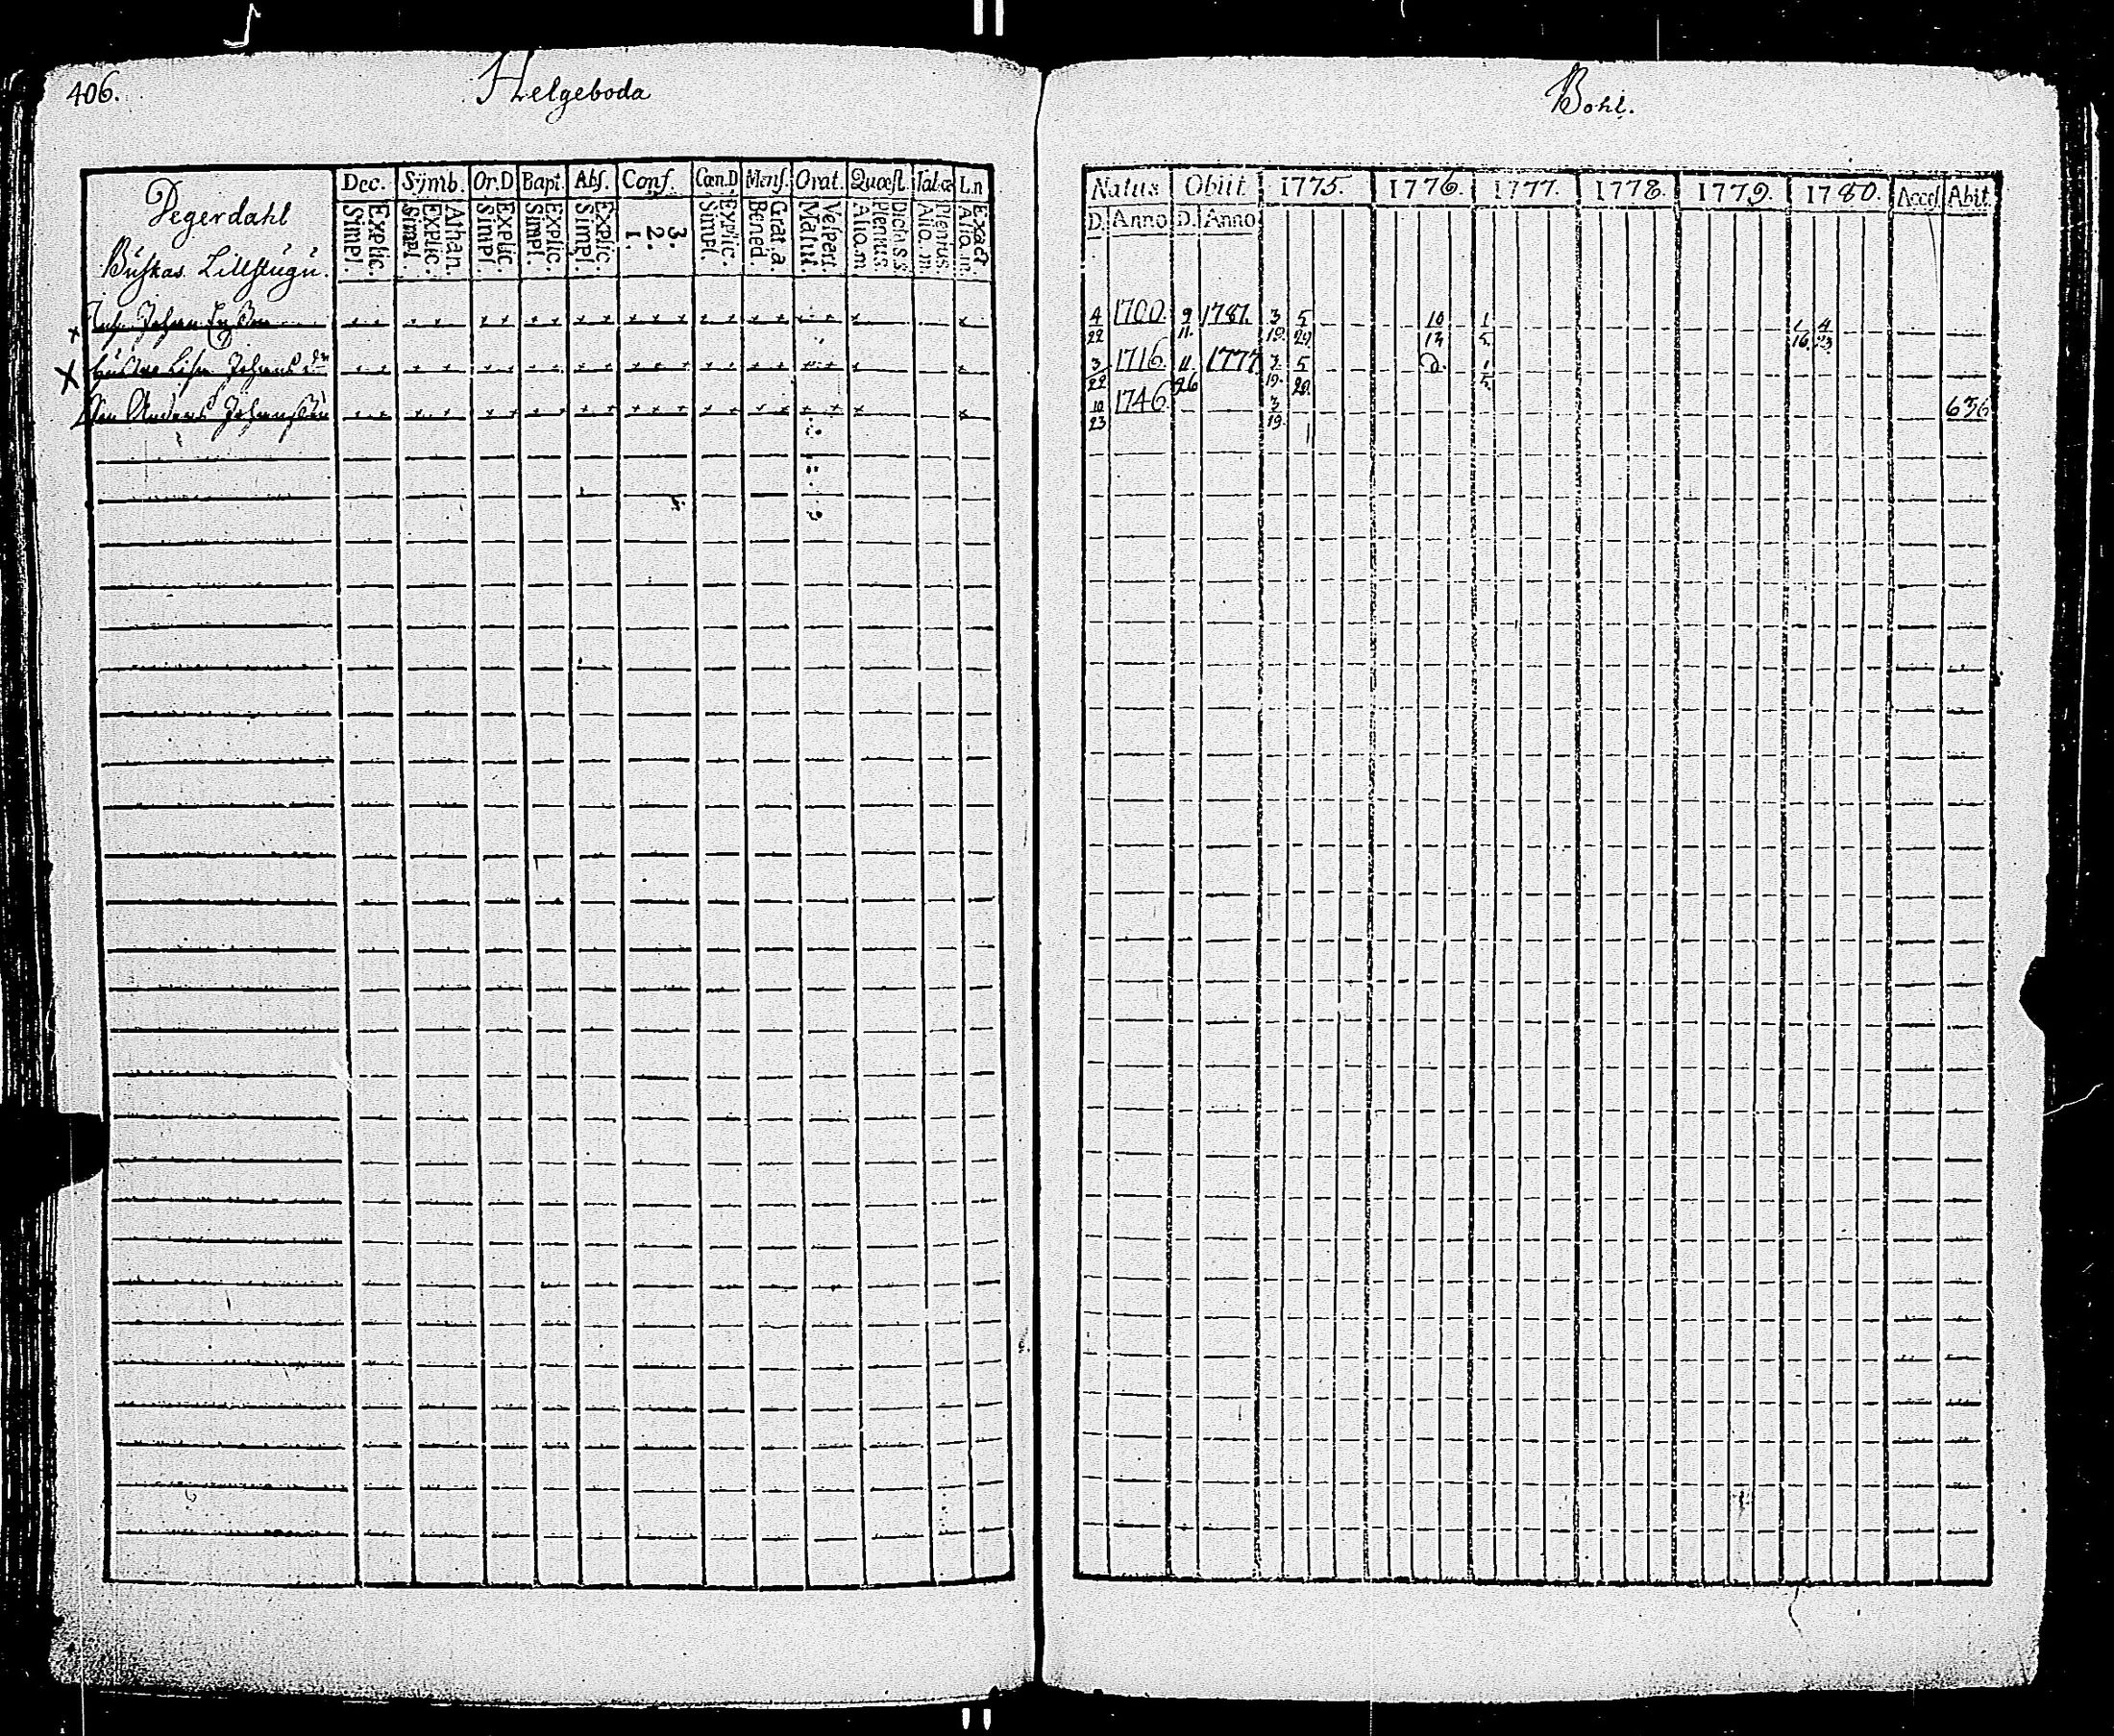 406.
Helgeboda
Degerdahl
Buskas Lillstugu.
Dec. Symb. Or.D Bapt. Abs. Conf. Cœn.D Mens. Orat. Quæst. Tab.œ L.n
Simpl. Explic. Simpl. Explic. Athan. Simpl. Explic. Simpl. Explic. Simpl. Explic. 1. 2. 3. Simpl. Explic. Bened. Grat.a. Matut. Vespert. Alio.m Plenius. Dicta s.s. Alio.m. Plenius. Alio.m. Exact.
Johan
Lisa Johans dr
Anders Johansson
Bohl.
Natus Obiit 1775. 1776. 1777. 1778. 1779. 1780. Acces. Abit.
D. Anno D. Anno
4 1700 9 1781 3 5 10 1 4
22 11. 19. 29. 13 5. 16. 23.
3 1716 11 1777 3 5 1
22 26 19. 29. 5.
10 1746 3 636
23 19.